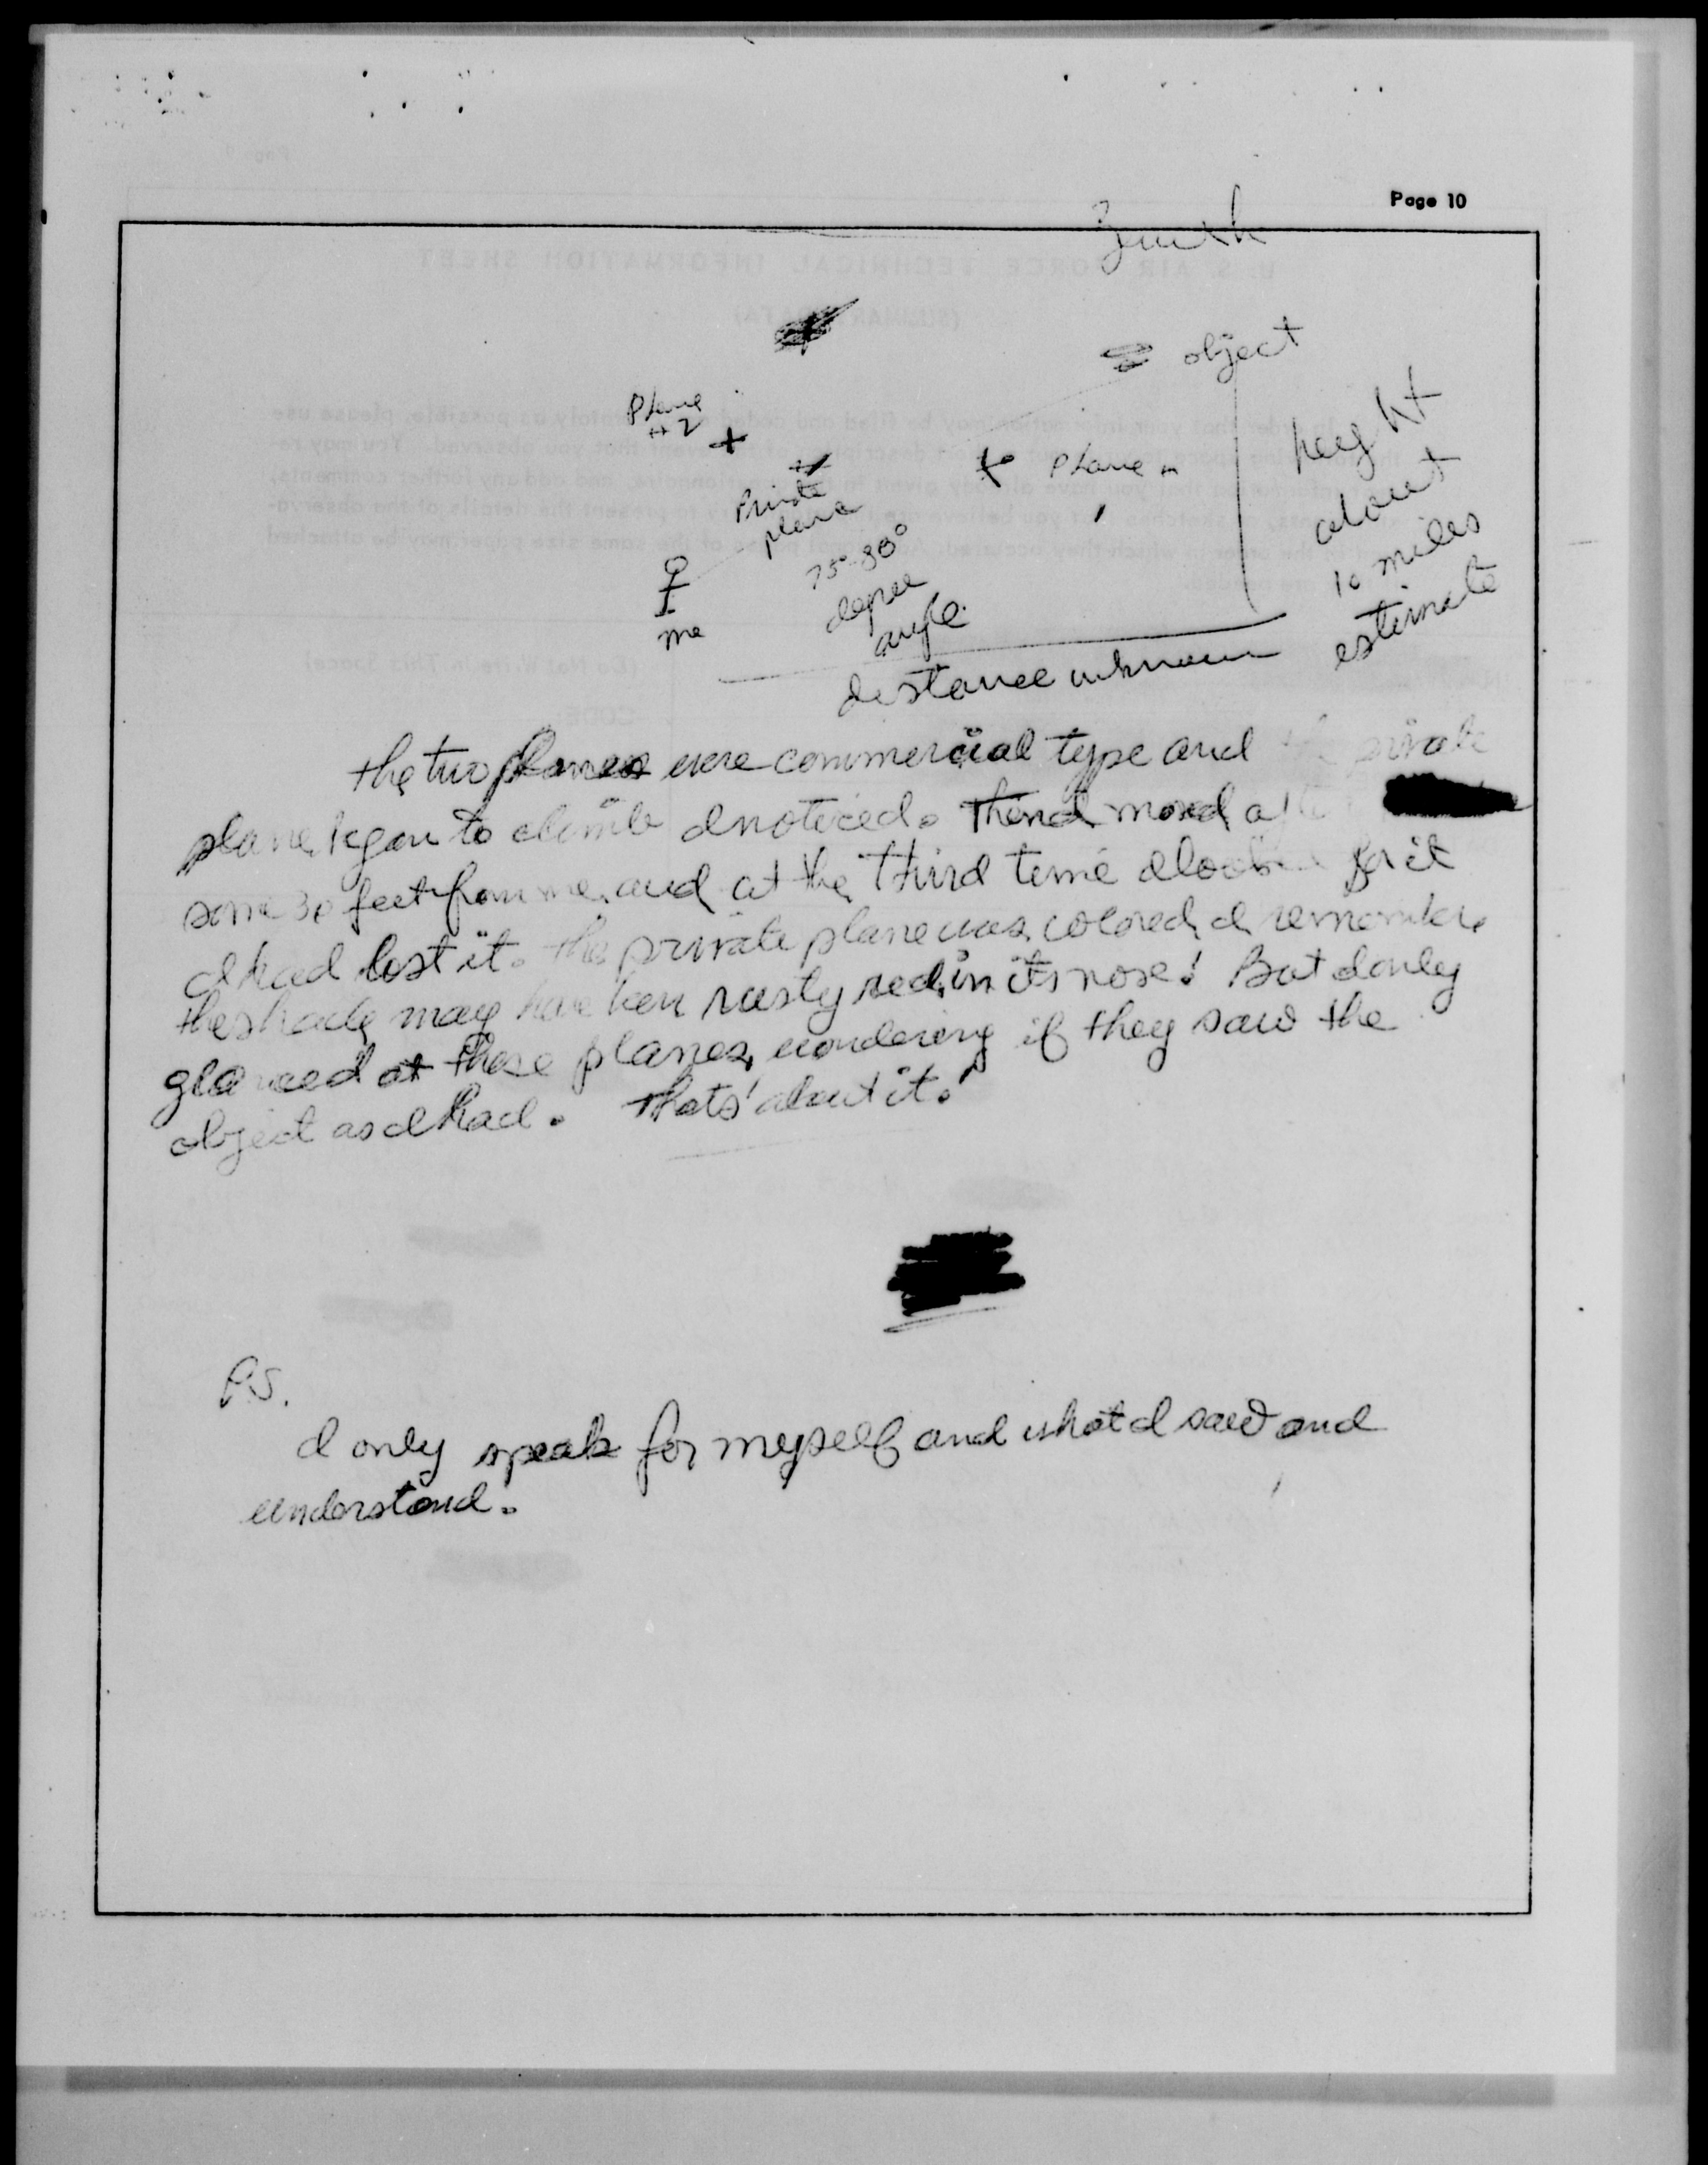 Page 10
Zenith
object
Plane
#2
Plane
Private
plane
75°-80°
degree
angle
me
height
about
10 miles
estimate
distance unknown
the two planes were commercial type and the private
plane began to climb I noticed. Then I moved
some 30 feet from me, and at the third time I looked for it
I had lost it. The private plane was colored, I remember,
the shade may have been rusty red, in its nose! But I only
glanced at these planes, wondering if they saw the
object as I had. Thats' about it!
P.S.
I only speak for myself and what I saw and
understand.